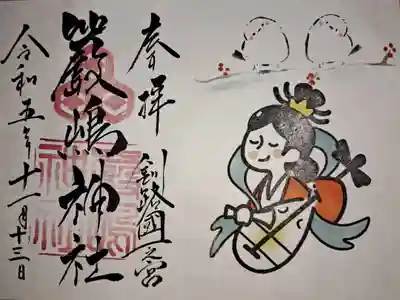 奉拝
釧路國一之宮
厳嶋神社
令和五年十一月十三日